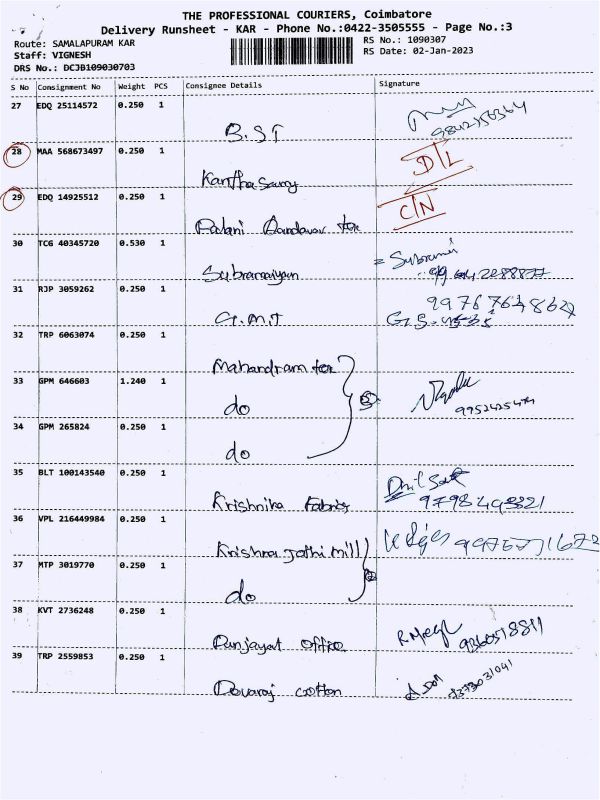 THE PROFESSIONAL COURIERS, Coimbatore
Delivery Runsheet - KAR - Phone No.:0422-3505555 - Page No.:3
Route: SAMALAPURAM KAR
RS No.: 1090307
Staff: VIGNESH
RS Date: 02-Jan-2023
DRS No.: DCJB109030703
S No Consignment No Weight PCS Consignee Details Signature
27 EDQ 25114572 0.250 1
B.ST
28 MAA 568673497 0.250 1 D/L
Kanthasamy
29 EDQ 14925512 0.250 1 C/N
Palani tex
30 TCG 40345720 0.530 1
Subramaniyan
31 RJP 3059262 0.250 1
G.M.T
32 TRP 6063074 0.250 1
Mahandram tex
33 GPM 646603 1.240 1
do
34 GPM 265824 0.250 1
do
35 BLT 100143540 0.250 1
Krishnika Fabrics
36 VPL 216449984 0.250 1
Krishna Jothi mill
37 MTP 3019770 0.250 1
do
38 KVT 2736248 0.250 1
Punjayat office
39 TRP 2559853 0.250 1
Devaraj cotton